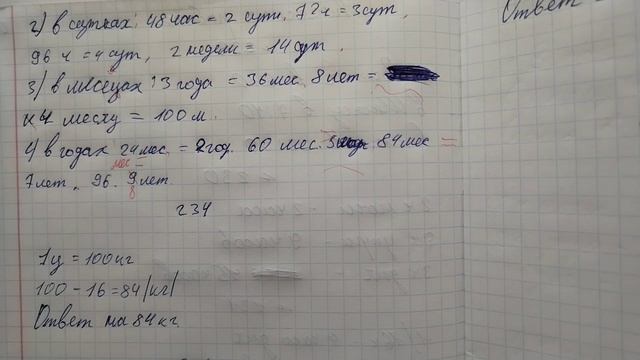 Ответ =
2) в сутках: 48 час = 2 сут, 72 ч = 3 сут,
96 ч = 4 сут, 2 недели = 14 сут.
3) в месецах: 3 года = 36 мес. 8 лет =
= 100 м.
4) в годах 24 мес. = 2 год. 60 мес. 84 мес =
мес =
7 лет. 96. 9 лет.
8
234
1ц = 100 кг
100 - 16 = 84 |кг|
Ответ на 84 кг.